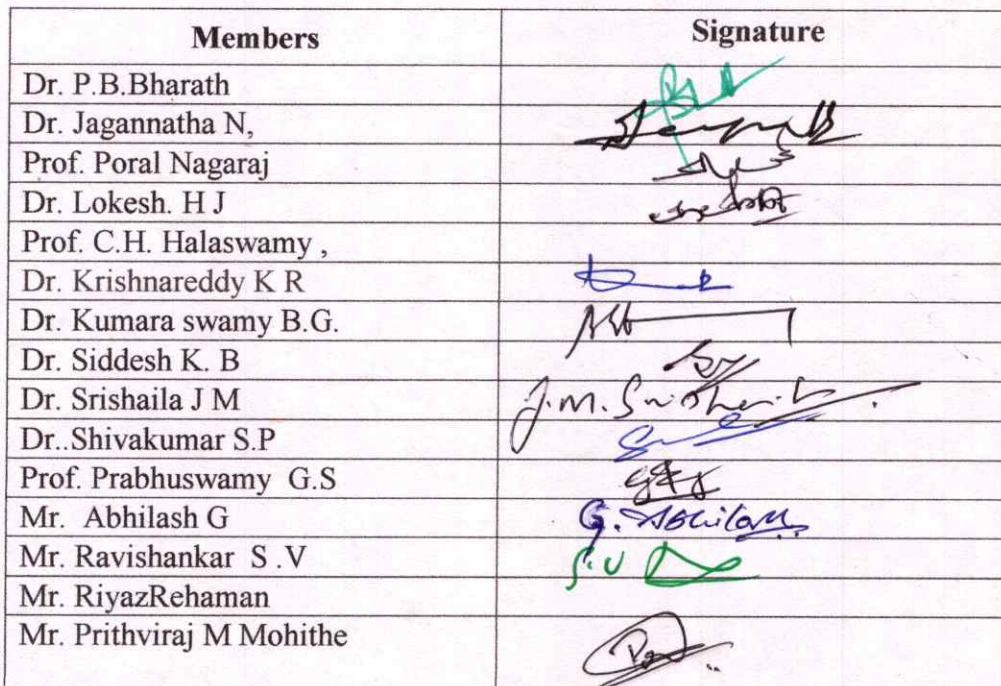 Members Signature
Dr. P.B.Bharath
Dr. Jagannatha N,
Prof. Poral Nagaraj
Dr. Lokesh. H J
Prof. C.H. Halaswamy ,
Dr. Krishnareddy K R
Dr. Kumara swamy B.G.
Dr. Siddesh K. B
Dr. Srishaila J M J.M.
Dr..Shivakumar S.P
Prof. Prabhuswamy G.S
Mr. Abhilash G G. Abhilash
Mr. Ravishankar S .V S.V
Mr. RiyazRehaman
Mr. Prithviraj M Mohithe